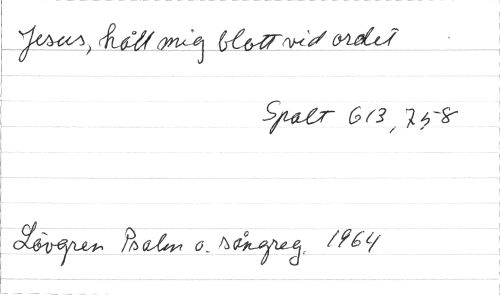 Jesus, håll mig blott vid ordet
Spalt 613, 758
Lövgren Psalm o. sångreg. 1964